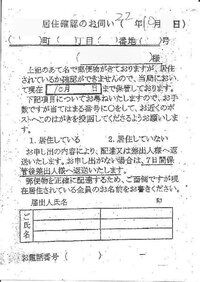 居住確認のお伺い 22年(10月 日)
( )町( )丁目( )番地( )号
( 様)
上記のあて名で郵便物がきておりますが、居住
されているか確認ができませんので、当局におい
て現在 10月 日 まで保管しております。
下記項目についてお尋ねいたしますので、お手
数ですが当てはまる番号に○をして、お近くのポ
ストへこのはがきを投函してくださるようお願い
します。
1.居住している 2.居住していない
お申し出の内容により、配達又は差出人様へ返
送いたします。お申し出がない場合は、7日間保
管後差出人様へ返送いたします。
郵便物を正確に配達するため、ご面倒ですが現
在居住されている全員のお名前をお書きください。
届出人氏名 印
ご氏名
お電話番号( ) -